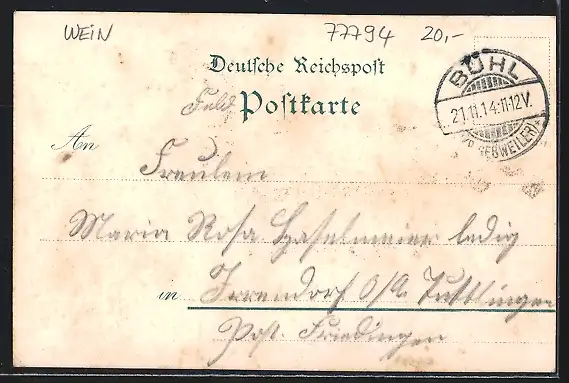 WEIN 77794 20,-
Deutsche Reichspost
Feld Postkarte
BÜHL
21.11.14.11-12V.
GEBWEILER)
An
Freulein
Maria Rosa Haselmeier ledig
in Irrendorf O/A Tuttlingen
Post. Friedingen